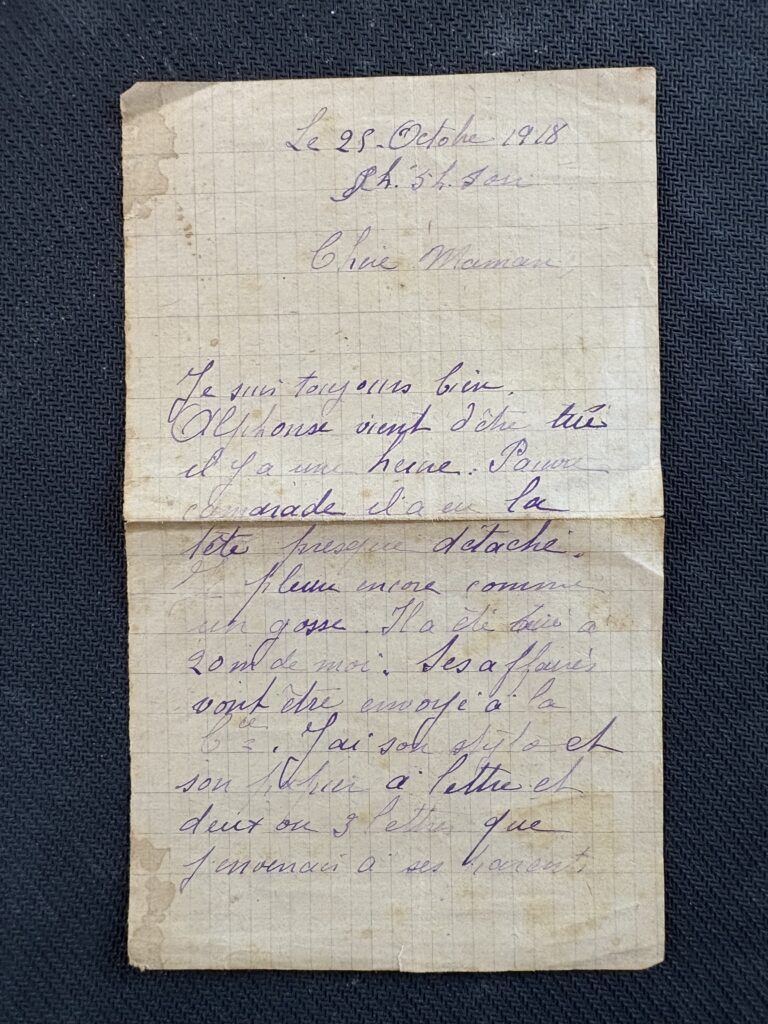 Le 25 Octobre 1918
5h. soir
Chère Maman,
Je suis toujours bien.
Alphonse vient d'être tué
il y a une heure. Pauvre
camarade il a eu la
tête presque détaché.
pleure encore comme
un gosse. Il a été tué à
20m de moi. Ses affaires
vont être envoyé à la
Cie. J'ai son stylo et
son papier à lettre et
deux ou 3 lettres que
j'enverrai à ses parents